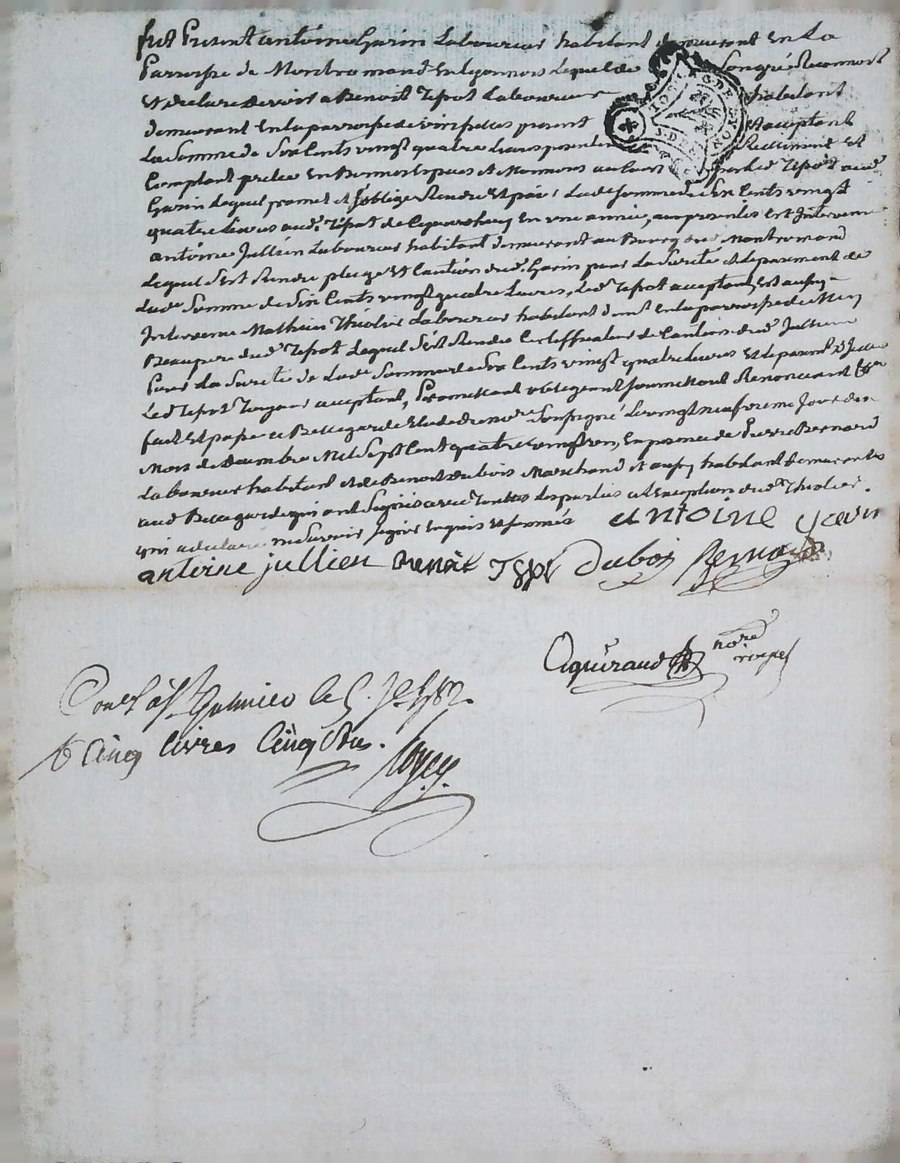 fut Present antoine Garin Laboureur habitant demeurant En La
Parroisse de Montromand En lyonnois Lequel de Son gré Reconnoit
Et declare devoir a Benoit Tepot Laboureur habitant
demeurant En la parroisse de present Et acceptant
La Somme de Six Cents vingt quatre Livres Reellement Et
Comptant En Bonnes Especes Et Monnoies au Cours par led. Tepot aud.
Garin Lequel promet Et s'oblige Rendre Et paier Lade. Somme de Six Cents vingt
quatre Livres aud. Tepot de Ce jourdhuy En une année, aux presentes Est Intervenu
antoine Jullien Laboureur habitant demeurant au Bourg dud. Montromand
Lequel s'Est Rendu pleige Et Caution dud. Garin pour La Sureté Et depaiement de
Lade. Somme de Six Cents vingt quatre Livres, Led. Tepot acceptant, Est aussy
Intervenu Mathieu Thiolier Laboureur habitant demt. En la parroisse de
Beaupere dud. Tepot Lequel s'Est Rendu Certifficateur de Caution dud. Jullien
Pour La Sureté de Lade. Somme de Six Cents vingt quatre Livres Et depaiement
Led. Tepot Toujours acceptant, Promettant obligeant Soumettant Renonceant
fait Et passé a Bellegarde Etude du nore. Soussigné Le vingt neufvieme Jour du
Mois de decembre Mil Sept Cent quatre vingt un, En presence de Pierre Bernard
Laboureur habitant Et de Benoit dubois Marchand Et aussy habitant demeurants
aud. Bellegarde qui ont Signés avec Toutes Les parties a L'Exception dud. Thiolier
qui a declaré ne Savoir Signer Enquis Et sommés antoine garin
antoine jullien Benoit Dubois Bernard
nore royal
Conlé à St Galmier le 5. Je 1782.
R cinq livres cinq sous.